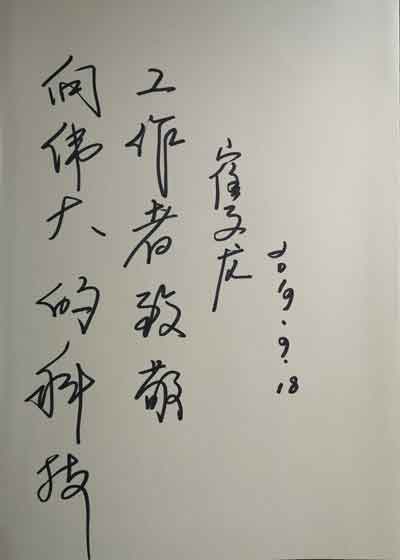 向伟大的科技
工作者致敬
崔文龙
2019.9.18